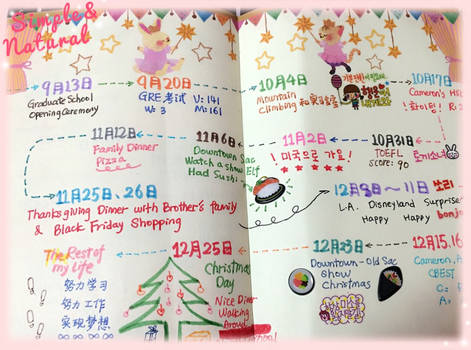 Simple &
Natural
9月13日
Graduate School
Opening Ceremony
9月20日
GRE考试 V: 141
W: 3 M: 161
10月4日
Mountain
Climbing
10月17日
Cameron's
! 화이팅!
11月12日
Family Dinner
Pizza
11月6日
Downtown Sac
Watch a show
Had Sushi
11月2日
! 미국으로 가요!
10月31日
TOEFL
score: 90
11月25日、26日
Thanksgiving Dinner with Brother's family
& Black Friday Shopping
12月8日~11日
L.A. Disneyland Surprise
Happy Happy
The Rest of
my Life
努力学习
努力工作
实现梦想
12月25日
Christmas
Day
Nice Dinner
Walking
Around
12月23日
Downtown-Old Sac
Show
Christmas
12月15.16
Cameron,
CBEST